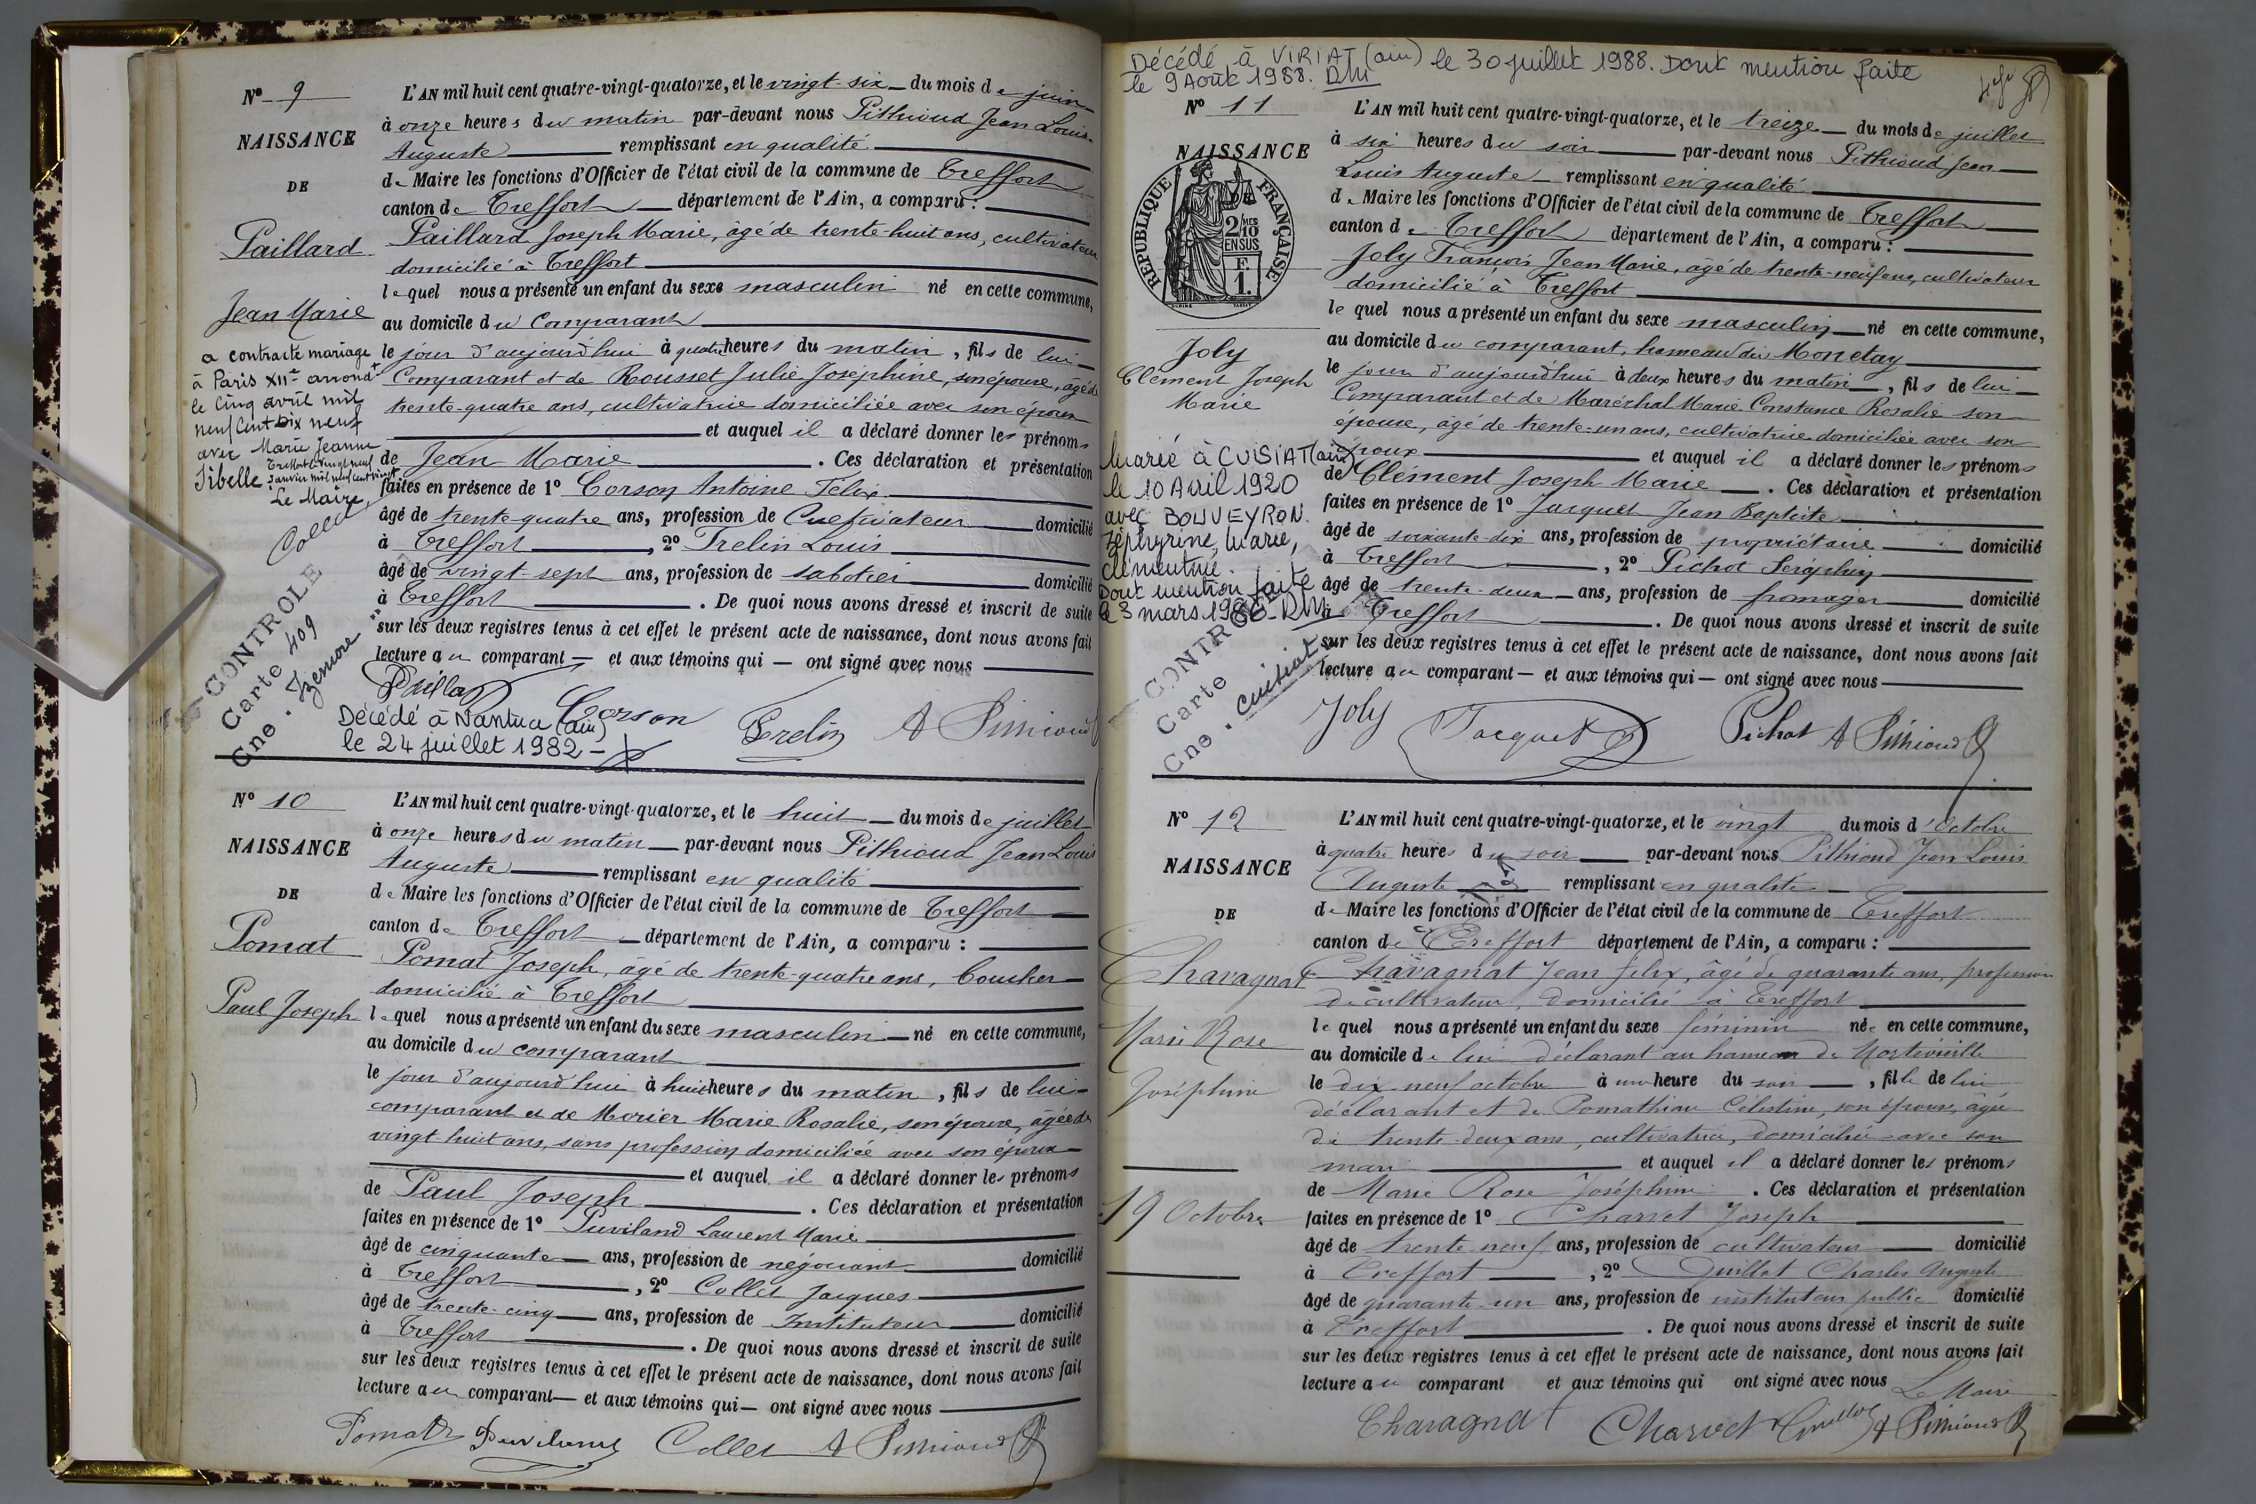 N° 9
NAISSANCE
DE
Paillard
Jean Marie
a contracté mariage
à Paris XIIe arrondt
le cinq avril mil
neuf cent dix neuf
avec Marie Jeanne
Sibelle Treffort le vingt neuf
janvier mil neuf cent vingt
Le Maire,
Collet
CONTROLE
Carte 409
Cne. Izenore
L'AN mil huit cent quatre-vingt-quatorze, et le vingt-six du mois de juin
à onze heures du matin par-devant nous Pithioud Jean Louis
Auguste remplissant en qualité
de Maire les fonctions d'Officier de l'état civil de la commune de Treffort
canton de Treffort département de l'Ain, a comparu :
Paillard Joseph Marie, âgé de trente-huit ans, cultivateur
domicilié à Treffort
lequel nous a présenté un enfant du sexe masculin né en cette commune,
au domicile du comparant
le jour d'aujourd'hui à quatre heures du matin, fils de lui
comparant et de Rousset Julie Joséphine, son épouse, âgé de
trente-quatre ans, cultivatrice domiciliée avec son époux
et auquel il a déclaré donner les prénoms
de Jean Marie. Ces déclaration et présentation
faites en présence de 1° Corson Antoine Félix
âgé de trente-quatre ans, profession de Cultivateur domicilié
à Treffort, 2° Trelin Louis
âgé de vingt-sept ans, profession de sabotier domicilié
à Treffort. De quoi nous avons dressé et inscrit de suite
sur les deux registres tenus à cet effet le présent acte de naissance, dont nous avons fait
lecture au comparant — et aux témoins qui — ont signé avec nous
Paillard Corson Trelin A Pithioud
Décédé à Nantua (ain)
le 24 juillet 1982 -
N° 10
NAISSANCE
DE
Pomat
Paul Joseph
L'AN mil huit cent quatre-vingt-quatorze, et le huit du mois de juillet
à onze heures du matin par-devant nous Pithioud Jean Louis
Auguste remplissant en qualité
de Maire les fonctions d'Officier de l'état civil de la commune de Treffort
canton de Treffort département de l'Ain, a comparu :
Pomat Joseph, âgé de trente-quatre ans, boucher
domicilié à Treffort
lequel nous a présenté un enfant du sexe masculin né en cette commune,
au domicile du comparant
le jour d'aujourd'hui à huit heures du matin, fils de lui
comparant et de Morier Marie Rosalie, son épouse, âgée de
vingt-huit ans, sans profession domiciliée avec son époux
et auquel il a déclaré donner les prénoms
de Paul Joseph. Ces déclaration et présentation
faites en présence de 1° Puviland Laurent Marie
âgé de cinquante ans, profession de négociant domicilié
à Treffort, 2° Collet Jacques
âgé de trente-cinq ans, profession de Instituteur domicilié
à Treffort. De quoi nous avons dressé et inscrit de suite
sur les deux registres tenus à cet effet le présent acte de naissance, dont nous avons fait
lecture au comparant — et aux témoins qui — ont signé avec nous
Pomat Puviland Collet A Pithioud
Décédé à VIRIAT (ain) le 30 juillet 1988. Dont mention faite
le 9 Août 1988. DM
N° 11
NAISSANCE
RÉPUBLIQUE FRANÇAISE
2/10 MES
EN SUS
F.
1.
Joly
Clément Joseph
Marie
Marié à CUISIAT (ain)
le 10 Avril 1920
avec BOUVEYRON
Zéphyrine, Marie,
Clémentine.
Dont mention faite
le 3 mars 1986 - DM
CONTROLE
Carte
Cne. Cuisiat
L'AN mil huit cent quatre-vingt-quatorze, et le treize du mois de juillet
à six heures du soir par-devant nous Pithioud Jean
Louis Auguste remplissant en qualité
de Maire les fonctions d'Officier de l'état civil de la commune de Treffort
canton de Treffort département de l'Ain, a comparu :
Joly François Jean Marie, âgé de trente-neuf ans, cultivateur
domicilié à Treffort
lequel nous a présenté un enfant du sexe masculin né en cette commune,
au domicile du comparant, hameau du Monetay
le jour d'aujourd'hui à deux heures du matin, fils de lui
comparant et de Maréchal Marie Constance Rosalie son
épouse, âgé de trente-un ans, cultivatrice domiciliée avec son
époux et auquel il a déclaré donner les prénoms
de Clément Joseph Marie. Ces déclaration et présentation
faites en présence de 1° Jacquet Jean Baptiste
âgé de soixante-dix ans, profession de propriétaire domicilié
à Treffort, 2° Pichot Séraphin
âgé de trente-deux ans, profession de fromager domicilié
à Treffort. De quoi nous avons dressé et inscrit de suite
sur les deux registres tenus à cet effet le présent acte de naissance, dont nous avons fait
lecture au comparant — et aux témoins qui — ont signé avec nous
Joly Jacquet Pichot A Pithioud
N° 12
NAISSANCE
DE
Chavagnat
Marie Rose
Joséphine
19 Octobre
L'AN mil huit cent quatre-vingt-quatorze, et le vingt du mois d'Octobre
à quatre heures du soir par-devant nous Pithioud Jean Louis
Auguste remplissant en qualité
de Maire les fonctions d'Officier de l'état civil de la commune de Treffort
canton de Treffort département de l'Ain, a comparu :
Chavagnat Jean Félix, âgé de quarante ans, profession
de cultivateur, domicilié à Treffort
lequel nous a présenté un enfant du sexe féminin née en cette commune,
au domicile de lui déclarant au hameau de
le dix-neuf octobre à une heure du soir, fille de lui
déclarant et de Pomathiau Célestine, son épouse, âgée
de trente-deux ans, cultivatrice, domiciliée avec son
mari et auquel il a déclaré donner les prénoms
de Marie Rose Joséphine. Ces déclaration et présentation
faites en présence de 1° Charvet Joseph
âgé de trente neuf ans, profession de cultivateur domicilié
à Treffort, 2° Guillot Charles Auguste
âgé de quarante-un ans, profession de instituteur public domicilié
à Treffort. De quoi nous avons dressé et inscrit de suite
sur les deux registres tenus à cet effet le présent acte de naissance, dont nous avons fait
lecture au comparant et aux témoins qui ont signé avec nous Le Maire
Chavagnat Charvet Guillot A Pithioud